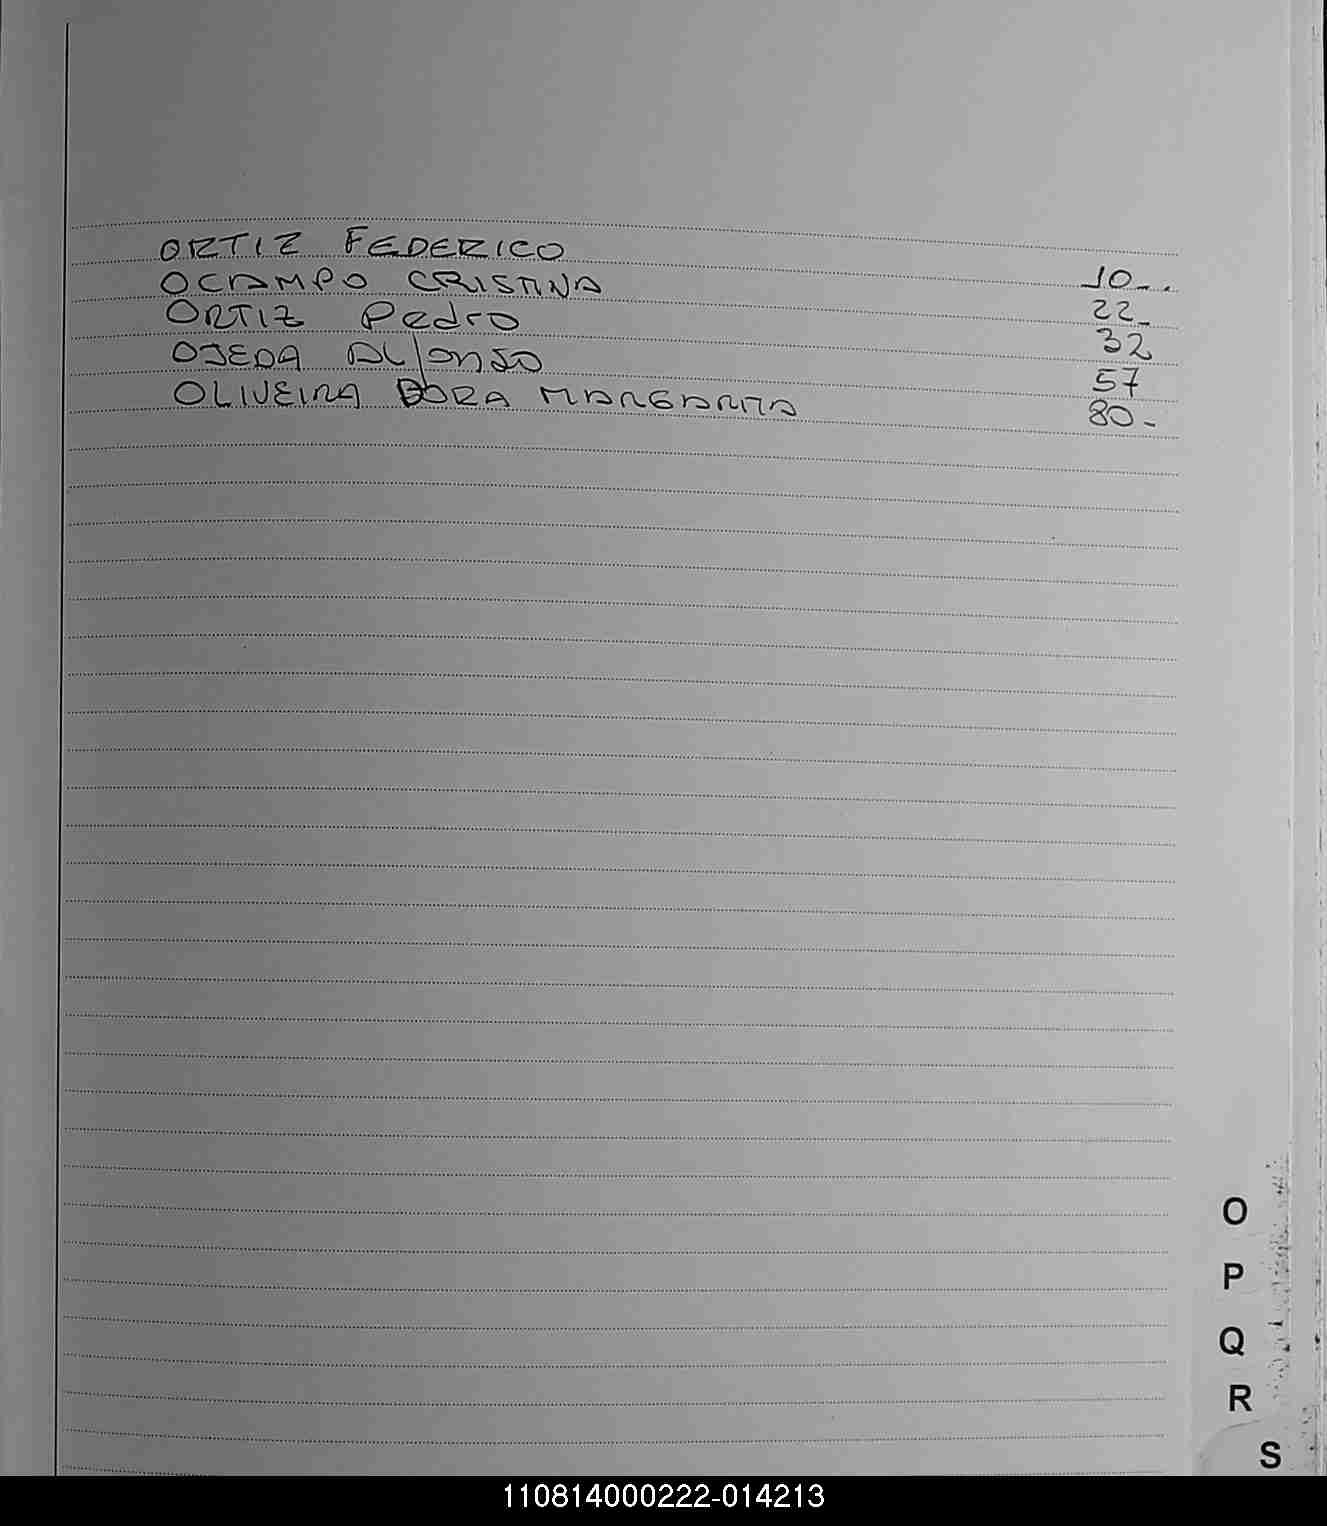 ORTIZ FEDERICO 10-..
OCAMPO CRISTINA 22-
ORTIZ Pedro 32
OJEDA ALfonso 57
OLIVEIRA DORA MARGARITA 80-
O
P
Q
R
S
110814000222-014213